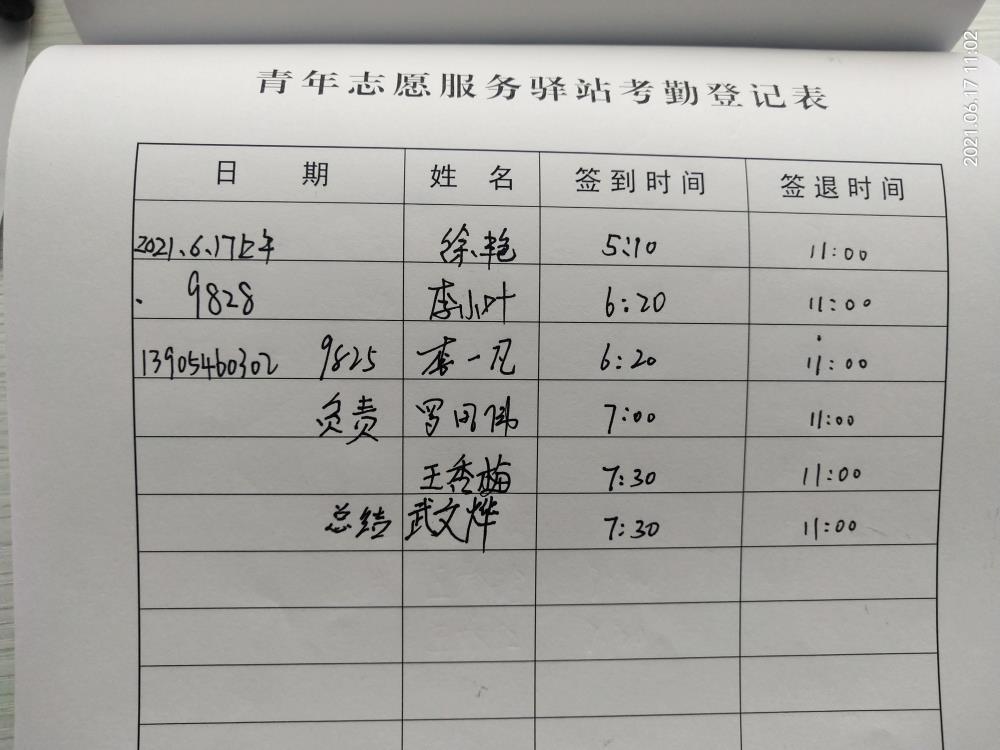 2021.06.17 11:02
青年志愿服务驿站考勤登记表
日 期 姓 名 签到时间 签退时间
2021.6.17上午 徐艳 5:10 11:00
9828 李小叶 6:20 11:00
13905460302 9825 李一凡 6:20 11:00
负责 罗 伟 7:00 11:00
王秀梅 7:30 11:00
总结 武文烨 7:30 11:00